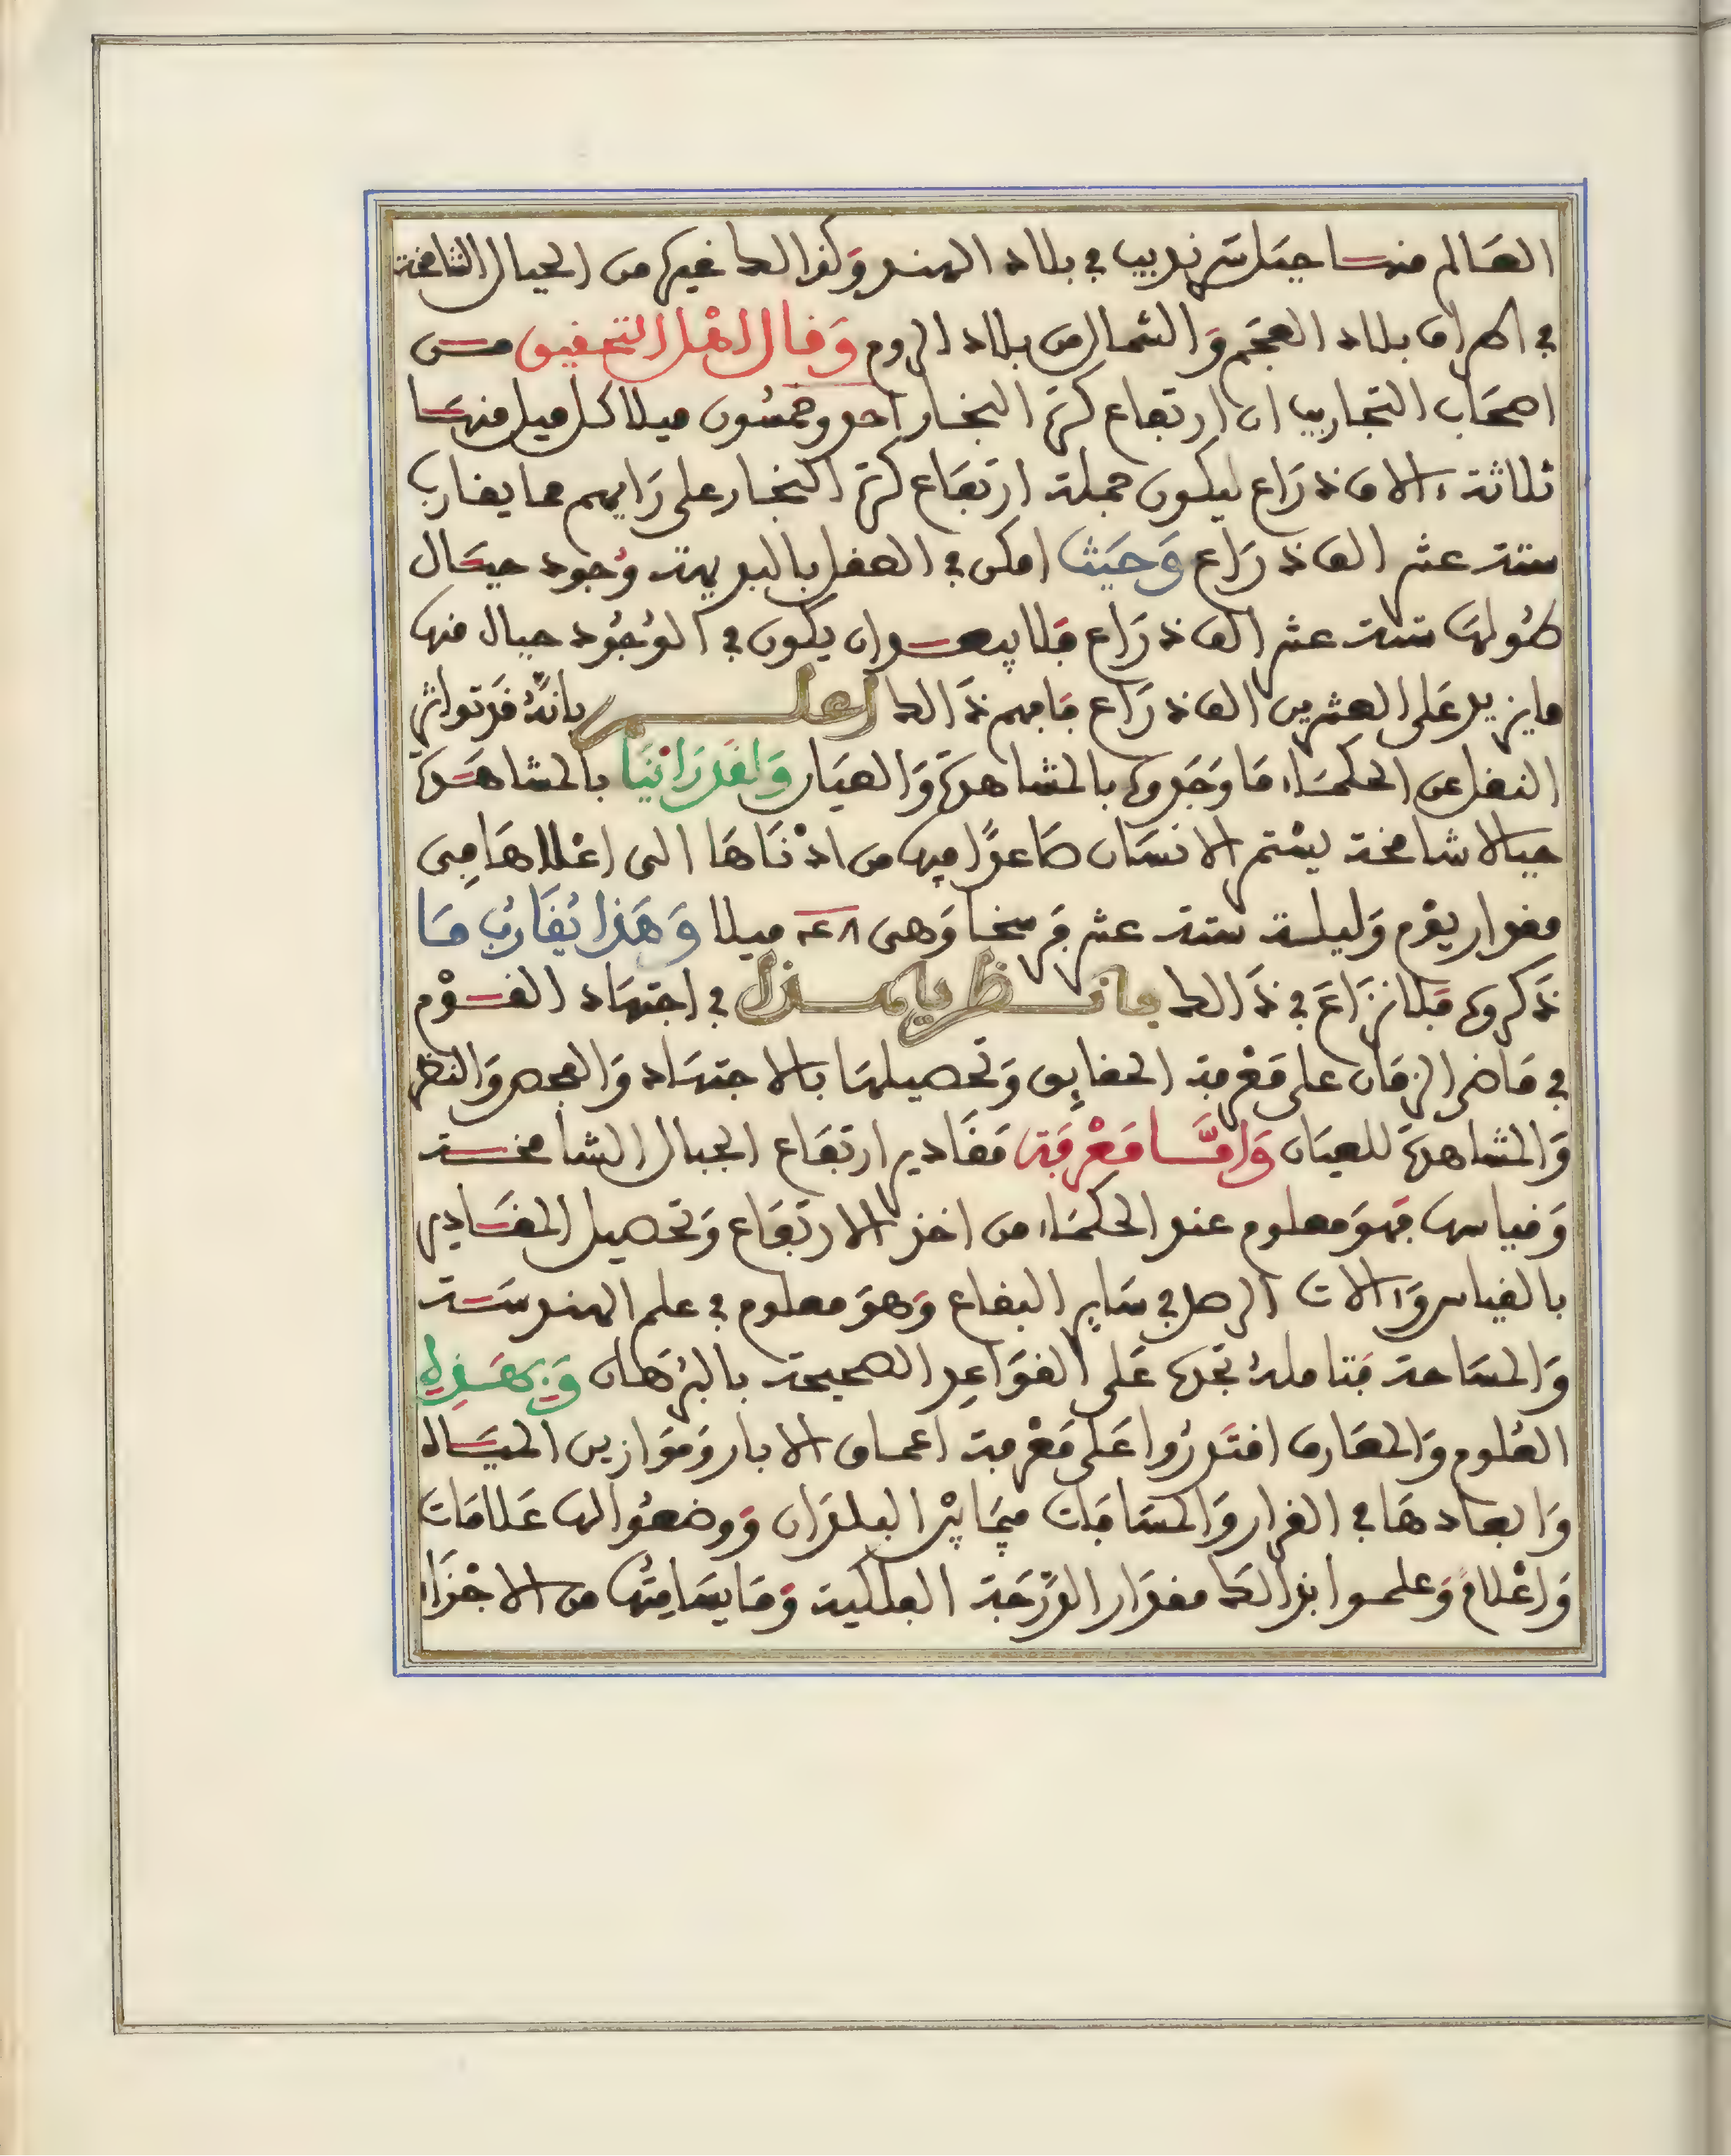 العَالم منها جَبَل سَرنديب في بلاد الهند وَكذالك غيره من الجبال الشامخة
في اطراف بلاد العجَم وَالشمال من بلاد الروم وَقال اهْل التحقيق من
اصحَاب التجاريب ان ارتفاع كرة البخار احد وخمسُون ميلا كل ميل منهَا
ثلاثة ءالاف ذرَاع ليكون جملة ارتفَاع كرة البخار على رَايهم مما يقارب
ستة عشر الف ذرَاع وَحَيْث امكن في العقل بالبديهة وُجود جبَال
طُولهَا ستة عشر الف ذرَاع فَلا يبعد ان يكون في الوُجُود جبال منها
ما يزيد عَلى العشرين الف ذرَاع فافهم ذَالك اعلم بانَّهُ قدْ تواتر
النقل عن الحكمَاء مَا وَجَدوه بالمشاهدَة وَالعيَان وَلقَد رَايْنَا بالمشاهَدة
جبالا شامخة يسْتمر الانسَان صَاعدًا فيها من ادْنَاهَا الى اعْلاهَا مِن
مقدار يوْم وَليلة ستة عشر فَرسخا وَهى ٤٨ ميلا وَهَذا يُقَاربُ مَا
ذَكروه فَلا نزَاعَ في ذَالك فانظر يا هذا في اجتهَاد القوْم
في مَاضى الزمَان على مَعْرفة الحقايِق وَتحصيلهَا بالاجتهَاد وَالفحص وَالنظر
وَالمشاهدَة للعيَان وَامَّا مَعْرفَة مَقَادير ارتفَاع الجبال الشامخة
وَقياسها فهوَ معلوم عند الحكمَاء من اخذ الارتفَاع وَتحصيل المقَادير
بالقياس وَءالات الرصد في سَايِر البقاع وَهوَ معلوم في علم الهندسَة
وَالمسَاحة فتاملهُ تجدهَا عَلى القوَاعِد الصحيحة بالبُرْهَان وَبِهَذِهِ
العُلوم وَالمعَارف اقتَدرُوا عَلى مَعْرفة اعماق الابار وَمَوَازين الميَاه
وَابعَادهَا في القرار وَالمسَافَات فيمَا بيْن البلدَان وَوضعُوا لها عَلامَات
وَاعْلامًا وَعلموا بذالكَ مقدَار الدَّرَجَة الفلكية وَمَا يسَامِتُهَا من الاجْزَاء